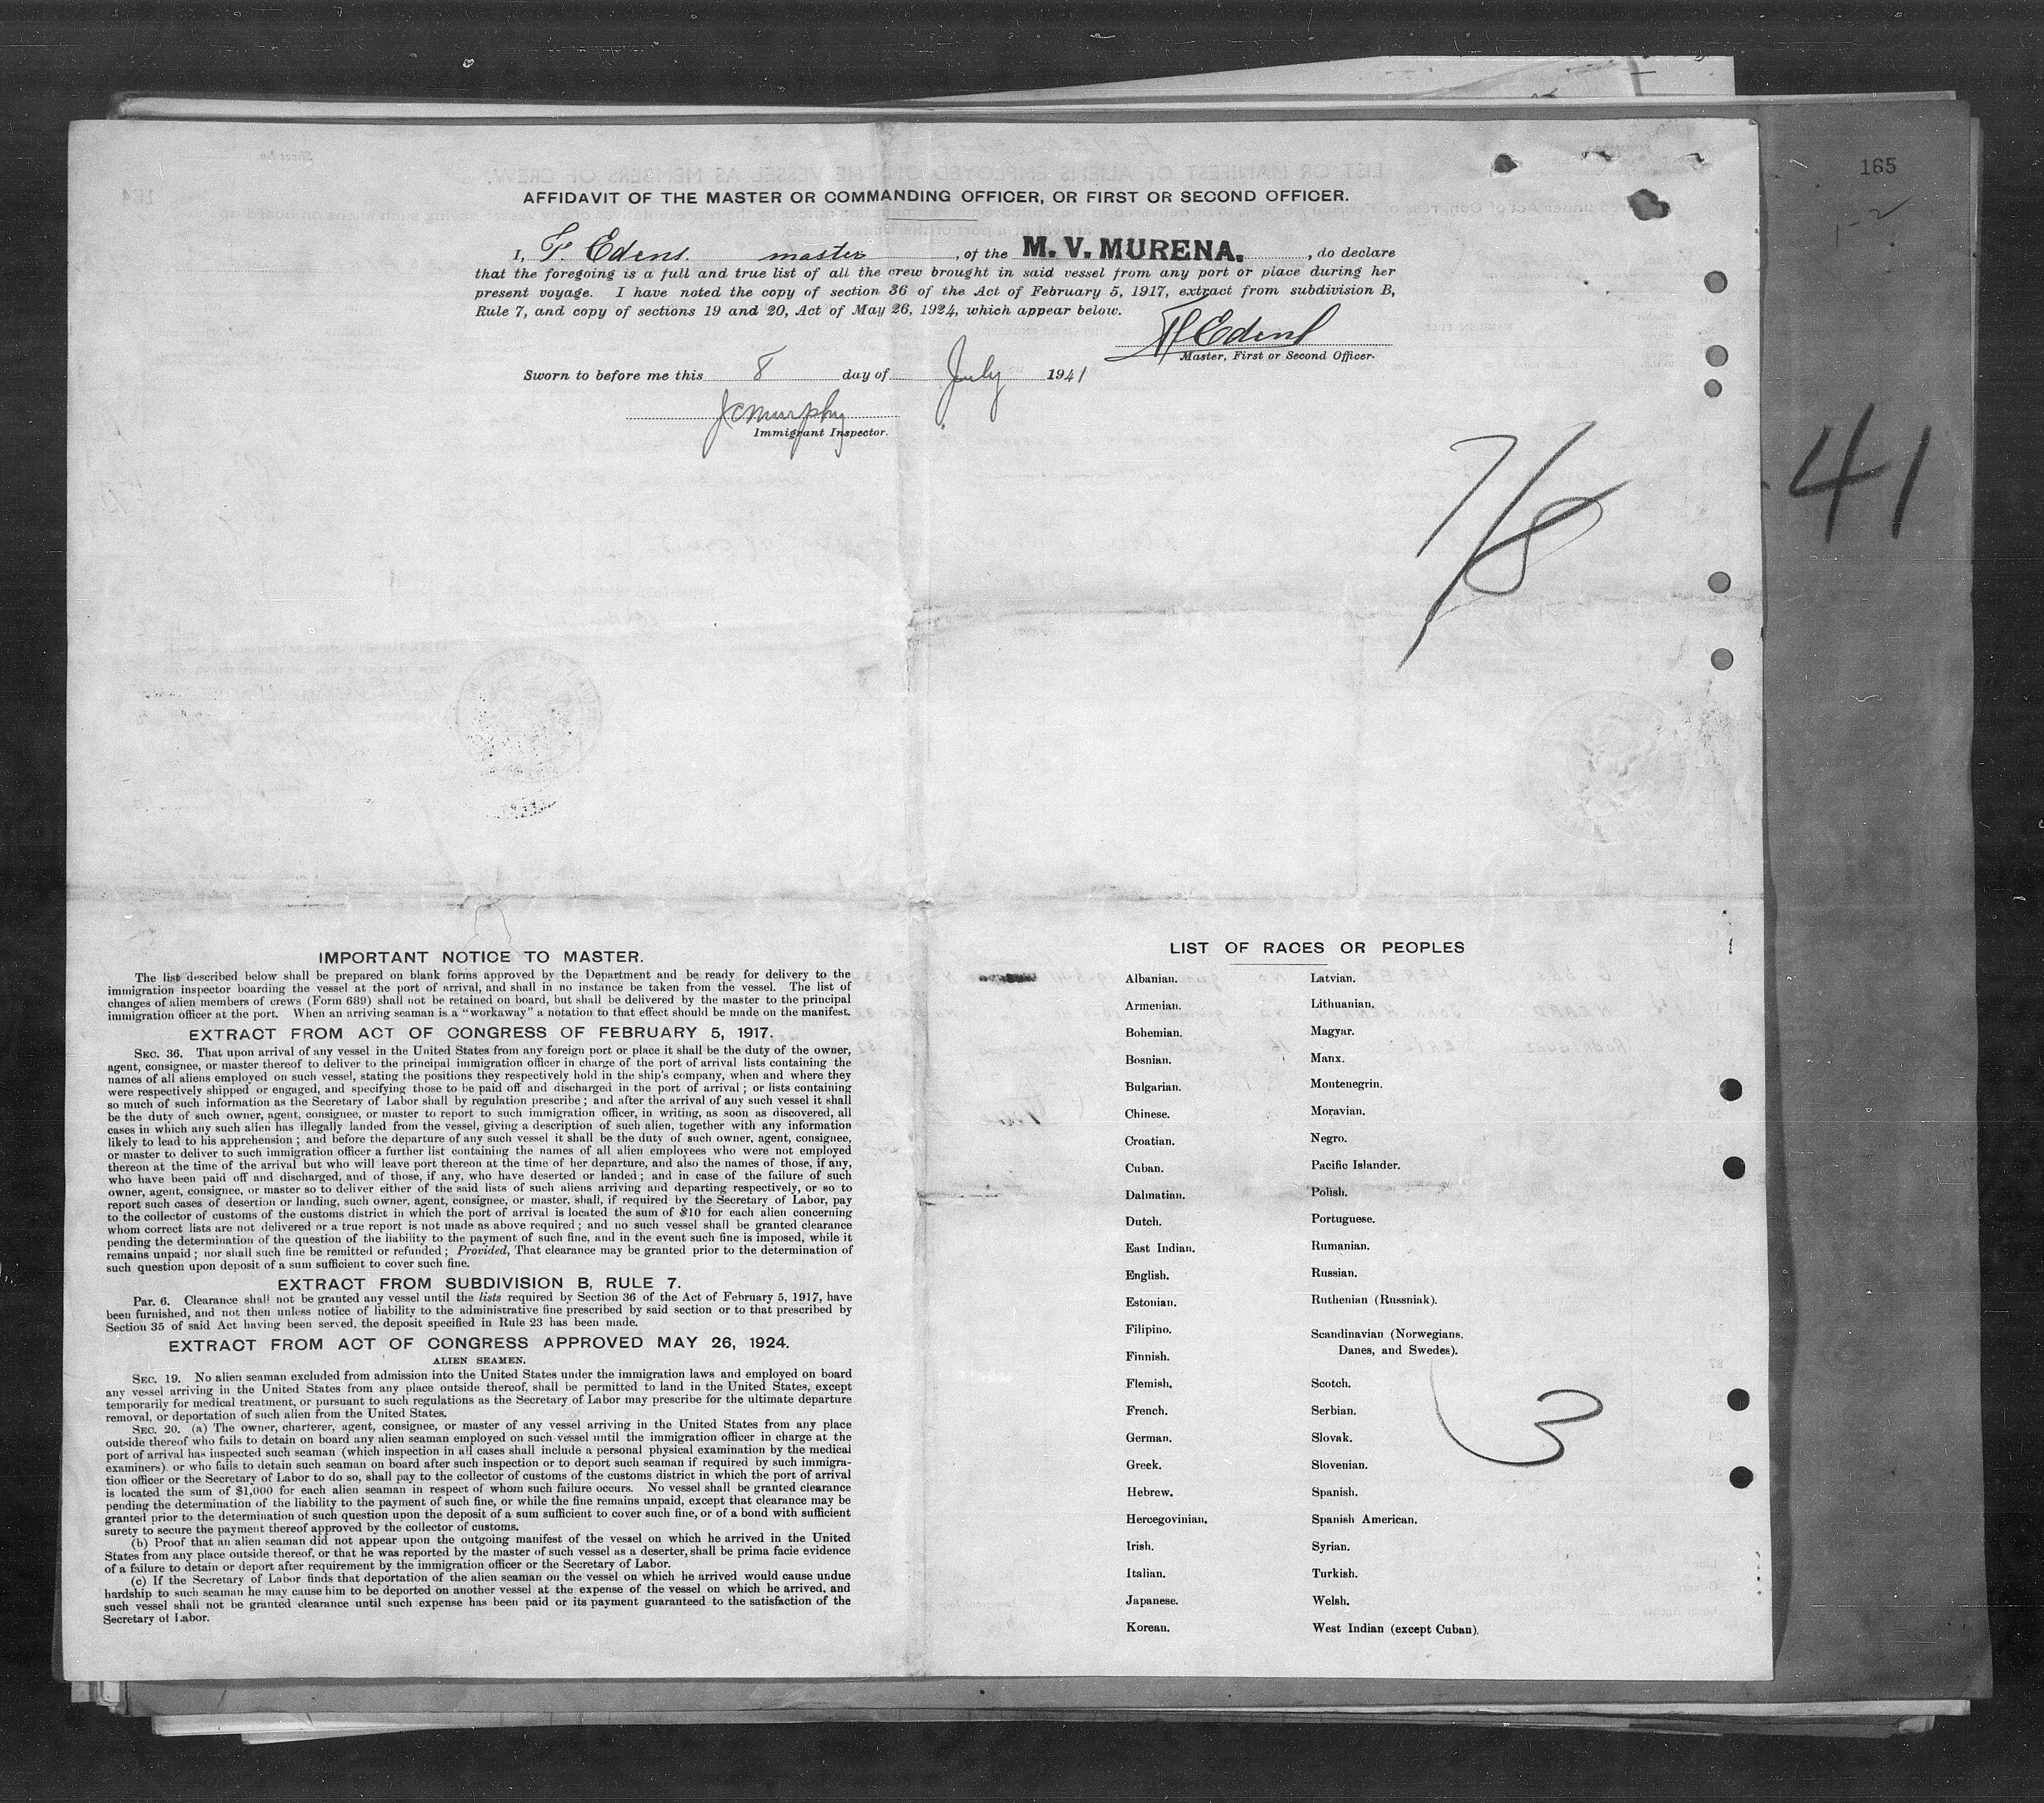 165
AFFIDAVIT OF THE MASTER OR COMMANDING OFFICER, OR FIRST OR SECOND OFFICER.
I, F. Edens. master, of the M. V. MURENA., do declare
that the foregoing is a full and true list of all the crew brought in said vessel from any port or place during her
present voyage. I have noted the copy of section 36 of the Act of February 5, 1917, extract from subdivision B,
Rule 7, and copy of sections 19 and 20, Act of May 26, 1924, which appear below.
F Edens
Master, First or Second Officer.
Sworn to before me this 8 day of July 1941
JCMurphy
Immigrant Inspector.
7/8
41
IMPORTANT NOTICE TO MASTER.
The list described below shall be prepared on blank forms approved by the Department and be ready for delivery to the
immigration inspector boarding the vessel at the port of arrival, and shall in no instance be taken from the vessel. The list of
changes of alien members of crews (Form 689) shall not be retained on board, but shall be delivered by the master to the principal
immigration officer at the port. When an arriving seaman is a "workaway" a notation to that effect should be made on the manifest.
EXTRACT FROM ACT OF CONGRESS OF FEBRUARY 5, 1917.
SEC. 36. That upon arrival of any vessel in the United States from any foreign port or place it shall be the duty of the owner,
agent, consignee, or master thereof to deliver to the principal immigration officer in charge of the port of arrival lists containing the
names of all aliens employed on such vessel, stating the positions they respectively hold in the ship's company, when and where they
were respectively shipped or engaged, and specifying those to be paid off and discharged in the port of arrival; or lists containing
so much of such information as the Secretary of Labor shall by regulation prescribe; and after the arrival of any such vessel it shall
be the duty of such owner, agent, consignee, or master to report to such immigration officer, in writing, as soon as discovered, all
cases in which any such alien has illegally landed from the vessel, giving a description of such alien, together with any information
likely to lead to his apprehension; and before the departure of any such vessel it shall be the duty of such owner, agent, consignee,
or master to deliver to such immigration officer a further list containing the names of all alien employees who were not employed
thereon at the time of the arrival but who will leave port thereon at the time of her departure, and also the names of those, if any,
who have been paid off and discharged, and of those, if any, who have deserted or landed; and in case of the failure of such
owner, agent, consignee, or master so to deliver either of the said lists of such aliens arriving and departing respectively, or so to
report such cases of desertion or landing, such owner, agent, consignee, or master, shall, if required by the Secretary of Labor, pay
to the collector of customs of the customs district in which the port of arrival is located the sum of $10 for each alien concerning
whom correct lists are not delivered or a true report is not made as above required; and no such vessel shall be granted clearance
pending the determination of the question of the liability to the payment of such fine, and in the event such fine is imposed, while it
remains unpaid; nor shall such fine be remitted or refunded; Provided, That clearance may be granted prior to the determination of
such question upon deposit of a sum sufficient to cover such fine.
EXTRACT FROM SUBDIVISION B, RULE 7.
Par. 6. Clearance shall not be granted any vessel until the lists required by Section 36 of the Act of February 5, 1917, have
been furnished, and not then unless notice of liability to the administrative fine prescribed by said section or to that prescribed by
Section 35 of said Act having been served, the deposit specified in Rule 23 has been made.
EXTRACT FROM ACT OF CONGRESS APPROVED MAY 26, 1924.
ALIEN SEAMEN.
SEC. 19. No alien seaman excluded from admission into the United States under the immigration laws and employed on board
any vessel arriving in the United States from any place outside thereof, shall be permitted to land in the United States, except
temporarily for medical treatment, or pursuant to such regulations as the Secretary of Labor may prescribe for the ultimate departure
removal, or deportation of such alien from the United States.
SEC. 20. (a) The owner, charterer, agent, consignee, or master of any vessel arriving in the United States from any place
outside thereof who fails to detain on board any alien seaman employed on such vessel until the immigration officer in charge at the
port of arrival has inspected such seaman (which inspection in all cases shall include a personal physical examination by the medical
examiners) or who fails to detain such seaman on board after such inspection or to deport such seaman if required by such immigra-
tion officer or the Secretary of Labor to do so, shall pay to the collector of customs of the customs district in which the port of arrival
is located the sum of $1,000 for each alien seaman in respect of whom such failure occurs. No vessel shall be granted clearance
pending the determination of the liability to the payment of such fine, or while the fine remains unpaid, except that clearance may be
granted prior to the determination of such question upon the deposit of a sum sufficient to cover such fine, or of a bond with sufficient
surety to secure the payment thereof approved by the collector of customs.
(b) Proof that an alien seaman did not appear upon the outgoing manifest of the vessel on which he arrived in the United
States from any place outside thereof, or that he was reported by the master of such vessel as a deserter, shall be prima facie evidence
of a failure to detain or deport after requirement by the immigration officer or the Secretary of Labor.
(c) If the Secretary of Labor finds that deportation of the alien seaman on the vessel on which he arrived would cause undue
hardship to such seaman he may cause him to be deported on another vessel at the expense of the vessel on which he arrived, and
such vessel shall not be granted clearance until such expense has been paid or its payment guaranteed to the satisfaction of the
Secretary of Labor.
LIST OF RACES OR PEOPLES
Albanian.
Armenian.
Bohemian.
Bosnian.
Bulgarian.
Chinese.
Croatian.
Cuban.
Dalmatian.
Dutch.
East Indian.
English.
Estonian.
Filipino.
Finnish.
Flemish.
French.
German.
Greek.
Hebrew.
Hercegovinian.
Irish.
Italian.
Japanese.
Korean.
Latvian.
Lithuanian.
Magyar.
Manx.
Montenegrin.
Moravian.
Negro.
Pacific Islander.
Polish.
Portuguese.
Rumanian.
Russian.
Ruthenian (Russniak).
Scandinavian (Norwegians,
Danes, and Swedes).
Scotch.
Serbian.
Slovak.
Slovenian.
Spanish.
Spanish American.
Syrian.
Turkish.
Welsh.
West Indian (except Cuban).
3